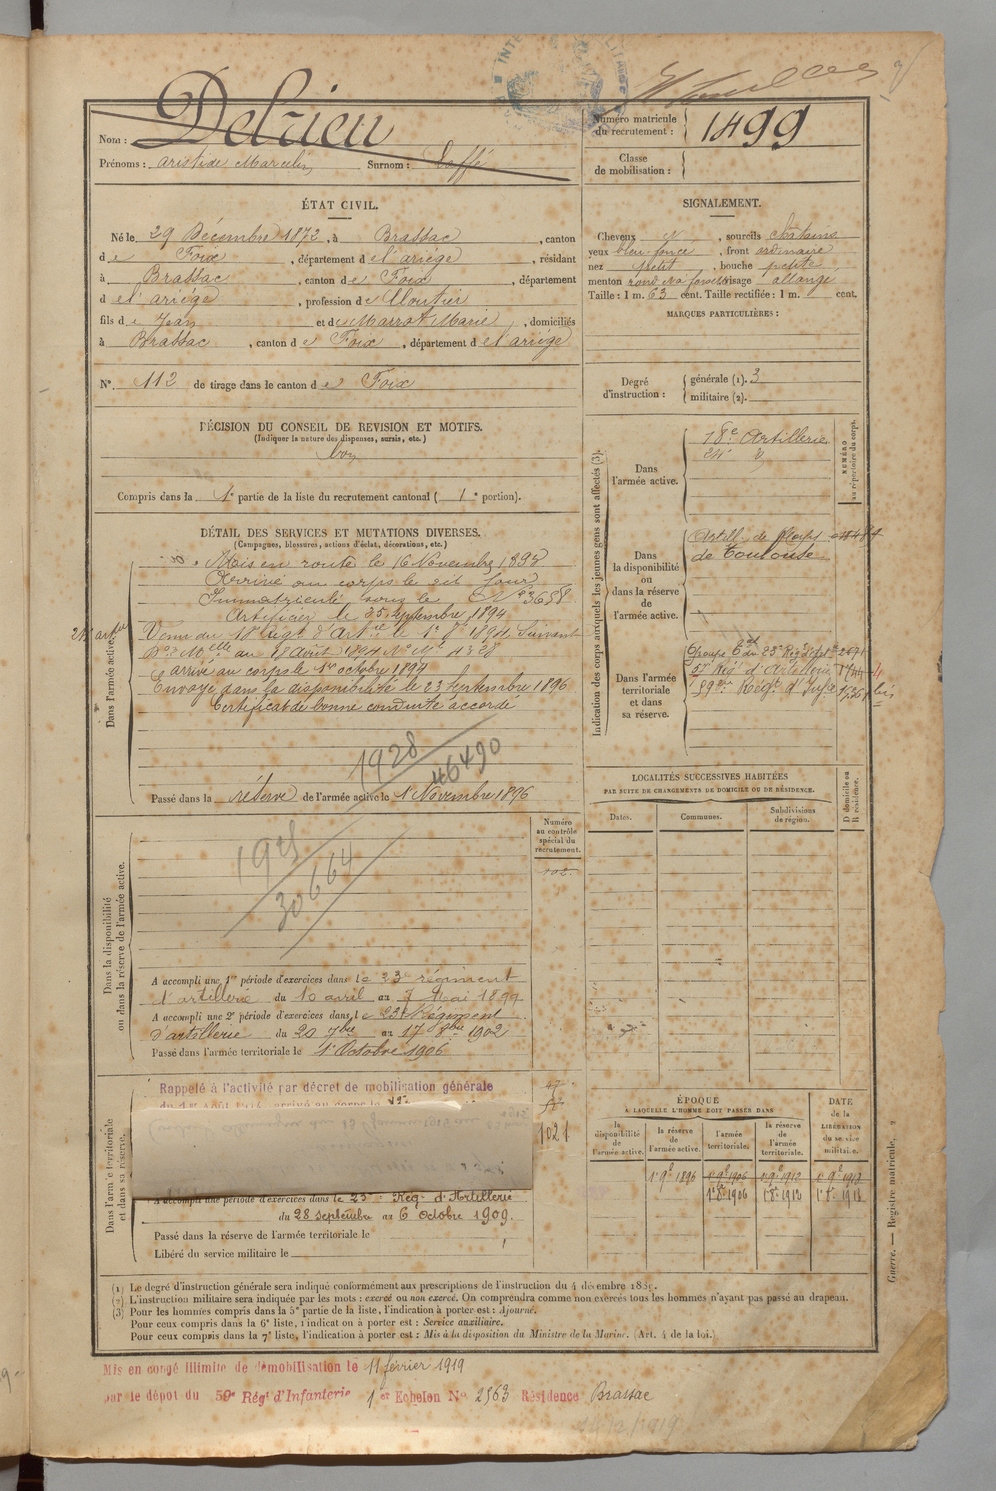 Nom : Delrieu
Prénoms : Aristide Marcelin Surnom : Laffé
Numéro matricule du recrutement : 1499
Classe de mobilisation :
ÉTAT CIVIL.
Né le 29 Décembre 1872, à Brassac, canton
de Foix, département de l'ariège, résidant
à Brassac, canton de Foix, département
de l'ariége, profession de Cloutier
fils de Jean et de Marrot Marie, domiciliés
à Brassac, canton de Foix, département de l'ariége
N°. 112 de tirage dans le canton de Foix
SIGNALEMENT.
Cheveux , sourcils châtains
yeux bleu foncé, front ordinaire
nez petit, bouche petite
menton rond à fossette visage allongé
Taille : 1 m. 63 cent. Taille rectifiée : 1 m. cent.
MARQUES PARTICULIÈRES :
Degré d'instruction : générale (1). 3
militaire (2).
DÉCISION DU CONSEIL DE REVISION ET MOTIFS.
(Indiquer la nature des dispenses, sursis, etc.)
bon
Compris dans la 1e partie de la liste du recrutement cantonal ( 1e portion).
DÉTAIL DES SERVICES ET MUTATIONS DIVERSES.
(Campagnes, blessures, actions d'éclat, décorations, etc.)
Dans l'armée active.
Mis en route le 16 Novembre 1893
Arrivé au corps le dit jour
Immatriculé sous le N° 3658
Artificier le 25 septembre 1894
Venu du 18e Régt d'Artie le 1er 8bre 1894. Suivant
Don Mlle du 18 Août 1894 N° Mle 4328
arrivé au corps le 1er octobre 1894
Envoyé dans la disponibilité le 23 Septembre 1896
Certificat de bonne conduite accordé
1928
46490
Passé dans la réserve de l'armée active le 1 Novembre 1896
Indication des corps auxquels les jeunes gens sont affectés (3).
NUMÉRO au répertoire du corps.
Dans l'armée active.
18e Artillerie
24e
Dans la disponibilité ou dans la réserve de l'armée active.
Artill. de Corps
de Toulouse
Dans l'armée territoriale et dans sa réserve.
Groupe du 23e Rég
57e Rég d'Artillerie
59e Régt d'Infie
LOCALITÉS SUCCESSIVES HABITÉES
PAR SUITE DE CHANGEMENTS DE DOMICILE OU DE RÉSIDENCE.
Dates. Communes. Subdivisions de région. D domicile ou R résidence.
Dans la disponibilité ou dans la réserve de l'armée active.
Numéro au contrôle spécial du recrutement.
102
30664
A accompli une 1re période d'exercices dans le 23e régiment
d'artillerie du 10 avril au 7 Mai 1899
A accompli une 2e période d'exercices dans le 23e Régiment
d'artillerie du 20 7bre au 17 8bre 1902
Passé dans l'armée territoriale le 1 Octobre 1906
Dans l'armée territoriale et dans sa réserve.
Rappelé à l'activité par décret de mobilisation générale
du 1er Août 1914, arrivé au corps le
1021
A accompli une période d'exercices dans le 23e Régt d'Artillerie
du 28 septembre au 6 octobre 1909.
Passé dans la réserve de l'armée territoriale le
Libéré du service militaire le
ÉPOQUE
À LAQUELLE L'HOMME DOIT PASSER DANS
la disponibilité de l'armée active. la réserve de l'armée active. l'armée territoriale. la réserve de l'armée territoriale.
DATE de la LIBÉRATION du service militaire.
1r 9e 1896 1r 9e 1906 1r 9e 1912 1r 9e 1912
1r 8e 1906 1r 8e 1912 1r 8e 1912
Guerre. — Registre matricule. 2
(1) Le degré d'instruction générale sera indiqué conformément aux prescriptions de l'instruction du 4 décembre 1889.
(2) L'instruction militaire sera indiquée par les mots : exercé ou non exercé. On comprendra comme non exercés tous les hommes n'ayant pas passé au drapeau.
(3) Pour les hommes compris dans la 5e partie de la liste, l'indication à porter est : Ajourné.
Pour ceux compris dans la 6e liste, l'indication à porter est : Service auxiliaire.
Pour ceux compris dans la 7e liste, l'indication à porter est : Mis à la disposition du Ministre de la Marine. (Art. 4 de la loi.)
Mis en congé illimité de démobilisation le 11 février 1919
par le dépôt du 59e Régt d'Infanterie 1er Echelon N° 2563 Résidence Brassac